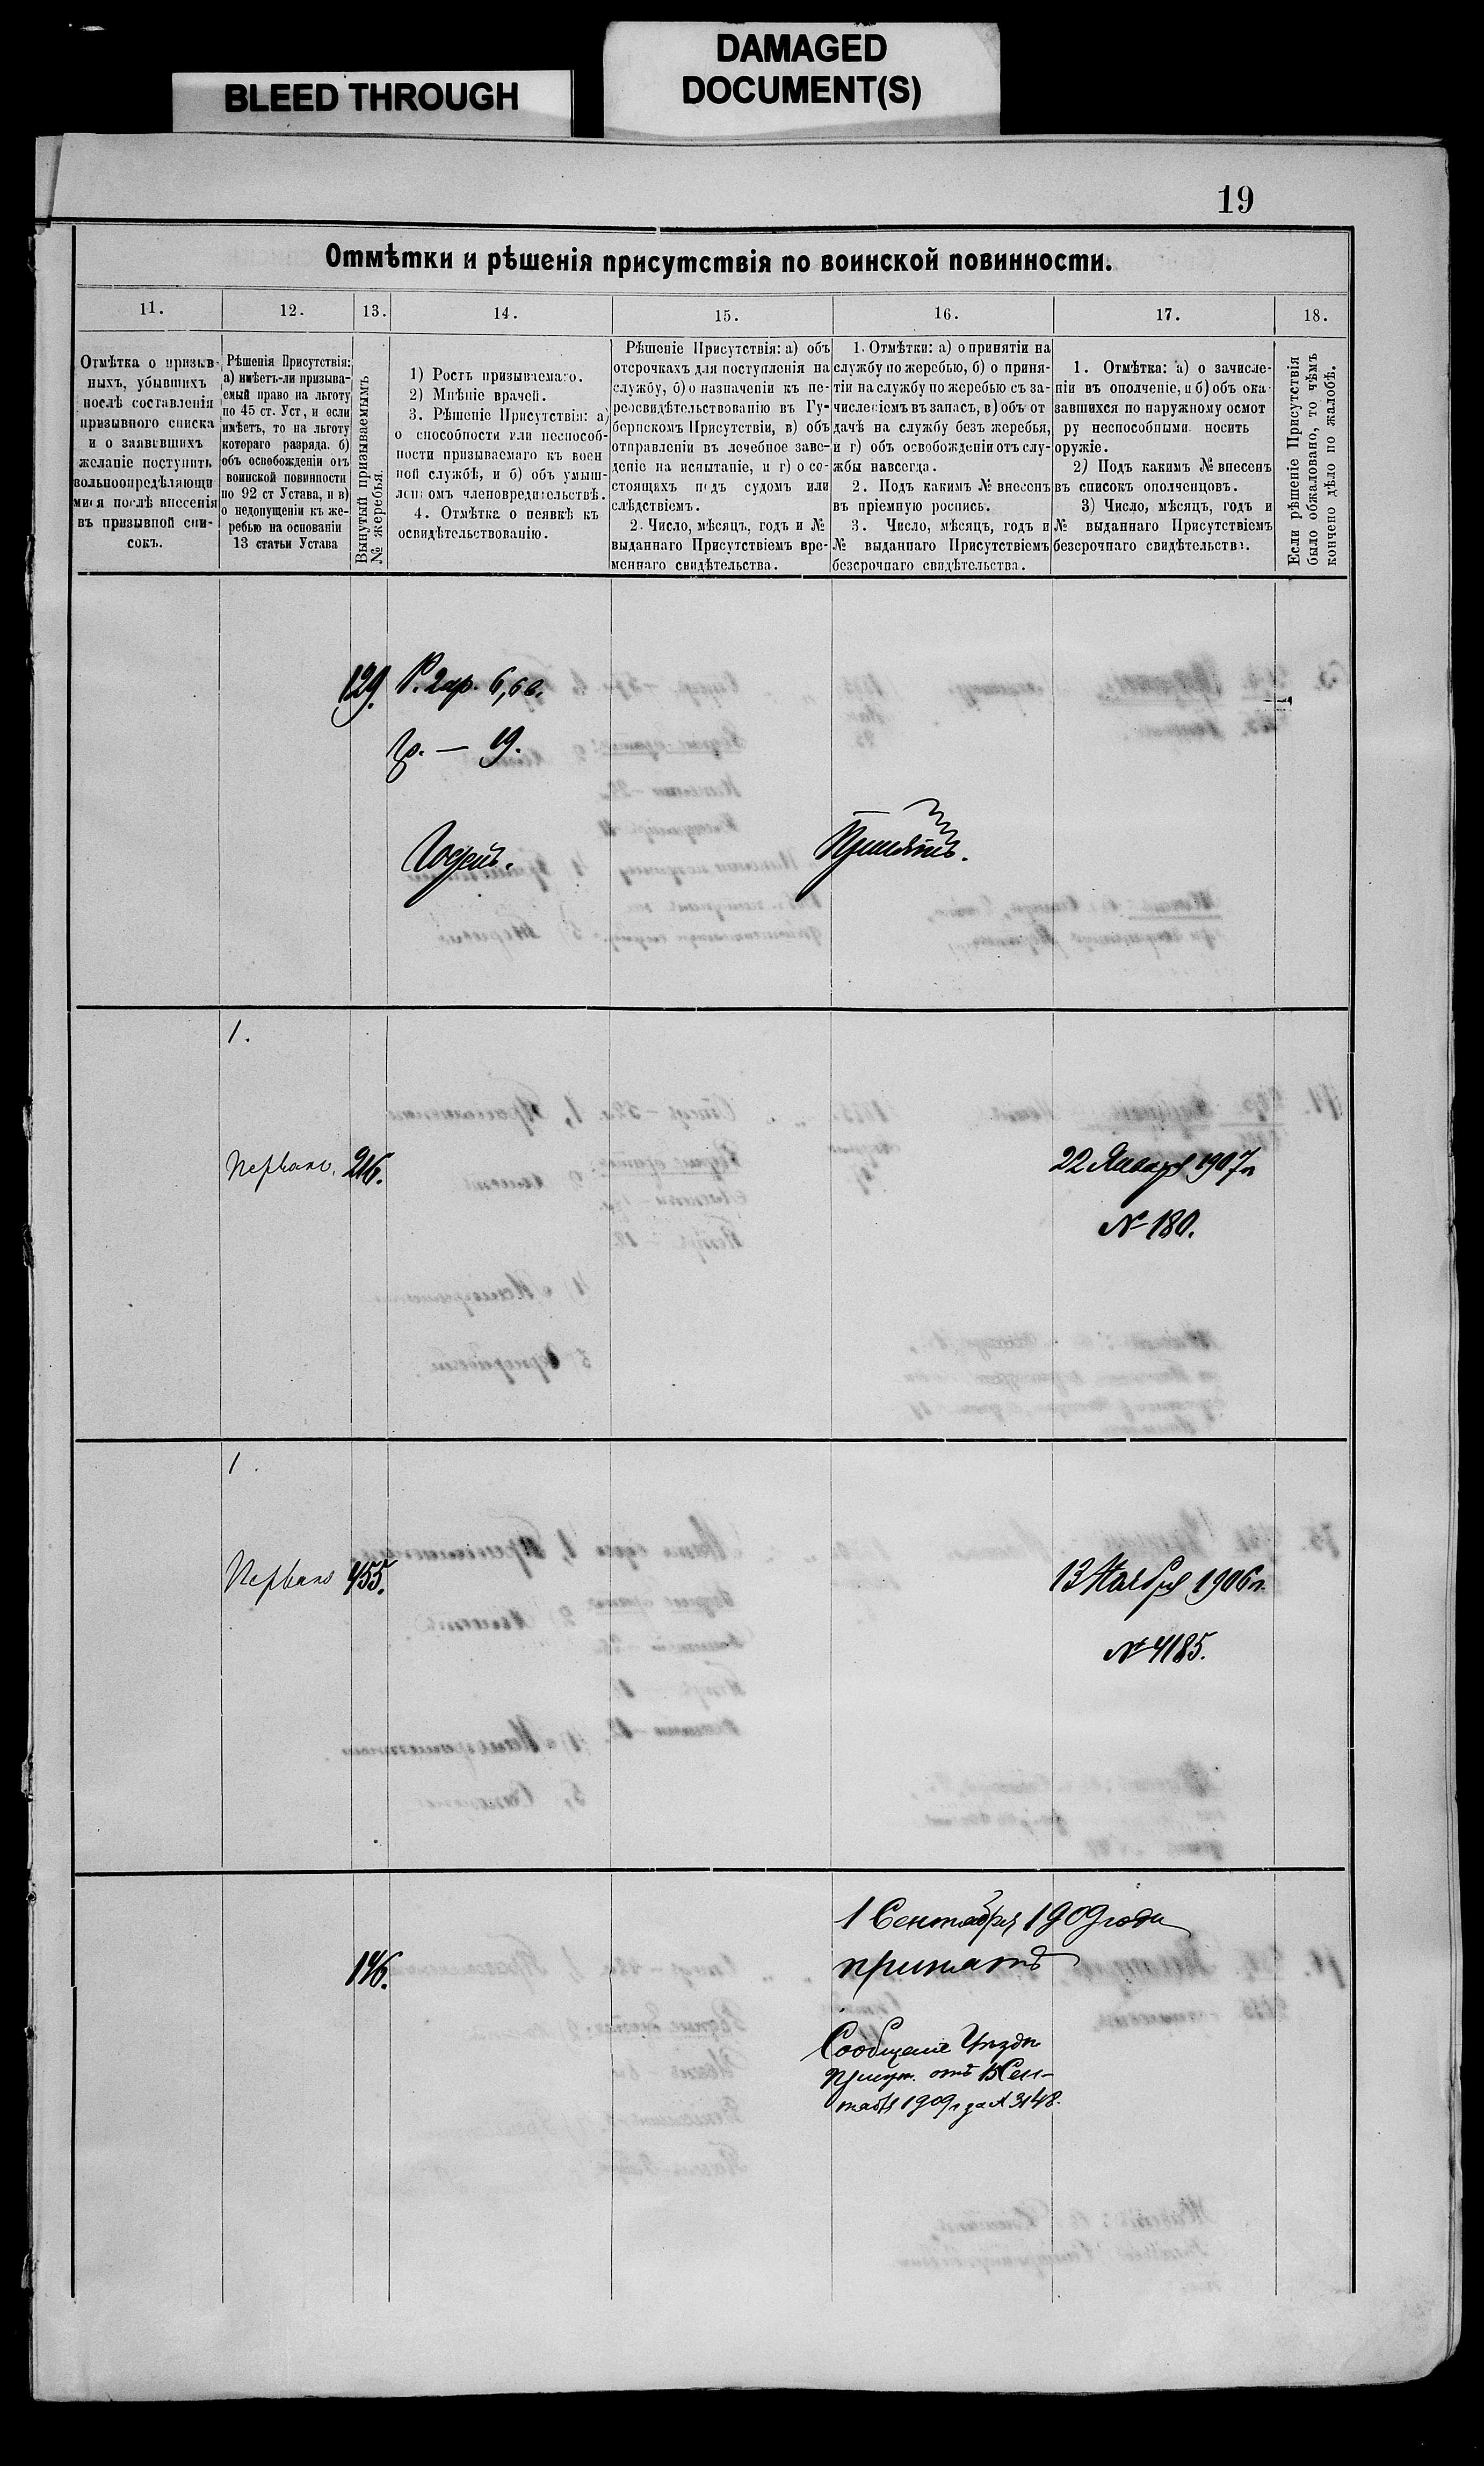 BLEED THROUGH
DAMAGED
DOCUMENT(S)
19
Отмѣтки и рѣшенія присутствія по воинской повинности.
11.
12.
13.
14.
15.
16.
17.
18.
Отмѣтка о призыв-
ныхъ, убывшихъ
послѣ составленія
призывного списка
и о заявившихъ
желаніе поступить
вольноопредѣляющи
мися послѣ внесенія
въ призывной спи-
сокъ.
Рѣшенія Присутствія:
а) имѣетъ-ли призыва-
емый право на льготу
по 45 ст. Уст, и если
имѣетъ, то на льготу
котораго разряда. б)
объ освобожденіи отъ
воинской повинности
по 92 ст Устава, и в)
о недопущеніи къ же-
ребью на основаніи
13 статьи Устава
Вынутый призываемымъ
№ жеребья.
1) Ростъ призываемаго.
2) Мнѣніе врачей.
3. Рѣшеніе Присутствія: а)
о способности или неспособ-
ности призываемаго къ воен
ной службѣ, и б) объ умыш-
леномъ членовредительствѣ.
4. Отмѣтка о неявкѣ къ
освидѣтельствованію.
Рѣшеніе Присутствія: а) объ
отсрочкахъ для поступленія на
службу, б) о назначеніи къ пе-
реосвидѣтельствованію въ Гу-
бернскомъ Присутствіи, в) объ
отправленіи въ лечебное заве-
деніе на испытаніе, и г) о со-
стоящихъ подъ судомъ или
слѣдствіемъ.
2. Число, мѣсяцъ, годъ и №
выданнаго Присутствіемъ вре-
меннаго свидѣтельства.
1. Отмѣтки: а) о принятіи на
службу по жеребью, б) о приня-
тіи на службу по жеребью съ за-
численіемъ въ запасъ, в) объ от
дачѣ на службу безъ жеребья,
и г) объ освобожденіи отъ слу-
жбы навсегда.
2. Подъ какимъ № внесенъ
въ пріемную роспись.
3. Число, мѣсяцъ, годъ и
№ выданнаго Присутствіемъ
безсрочнаго свидѣтельства.
1. Отмѣтка: а) о зачисле-
ніи въ ополченіе, и б) объ ока-
завшихся по наружному осмот
ру неспособными носить
оружіе.
2) Подъ какимъ № внесенъ
въ списокъ ополченцовъ.
3) Число, мѣсяцъ, годъ и
№ выданнаго Присутствіемъ
безсрочнаго свидѣтельства.
Если рѣшеніе Присутствія
было обжаловано, то чѣмъ
кончено дѣло по жалобѣ.
129. Р. 2 ар. 6,6 в.
гр. — 19.
Годенъ. Принятъ.
1.
Перваго. 216. 22 Января 1907 г
№ 180.
1.
Перваго 455. 13 Ноября 1906 г.
№ 4185.
1 Сентября 1909 года
146. принятъ
Сообщеніе Уѣздн
Присут. отъ 15 Сен-
тября 1909 г за № 3148.